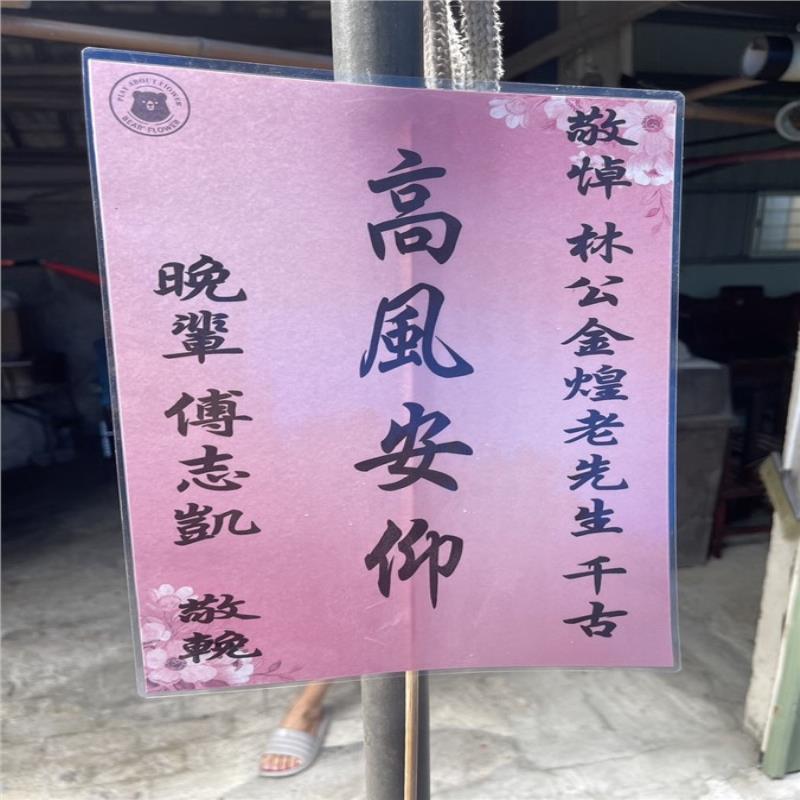 敬悼 林公金煌老先生 千古
高風安仰
晚輩 傅志凱 敬輓
PLAY ABOUT FLOWER
BEAR FLOWER